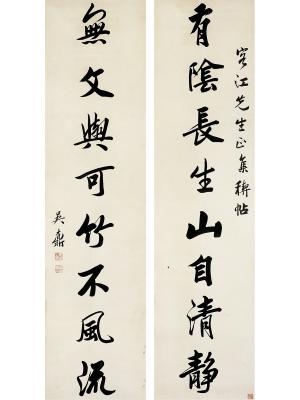 江先生正集稧帖
有陰長生山自清靜
無文與可竹不風流
吳鼒